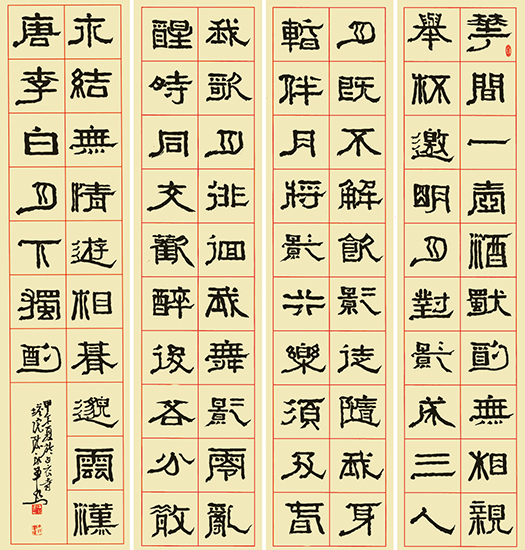 華間一壺酒獨酌無相親
舉杯邀明月對影成三人
月既不解飲影徒隨我身
暫伴月將影行樂須及春
我歌月徘徊我舞影零亂
醒時同交歡醉後各分散
永結無情遊相期邈雲漢
唐李白月下獨酌
甲午夏